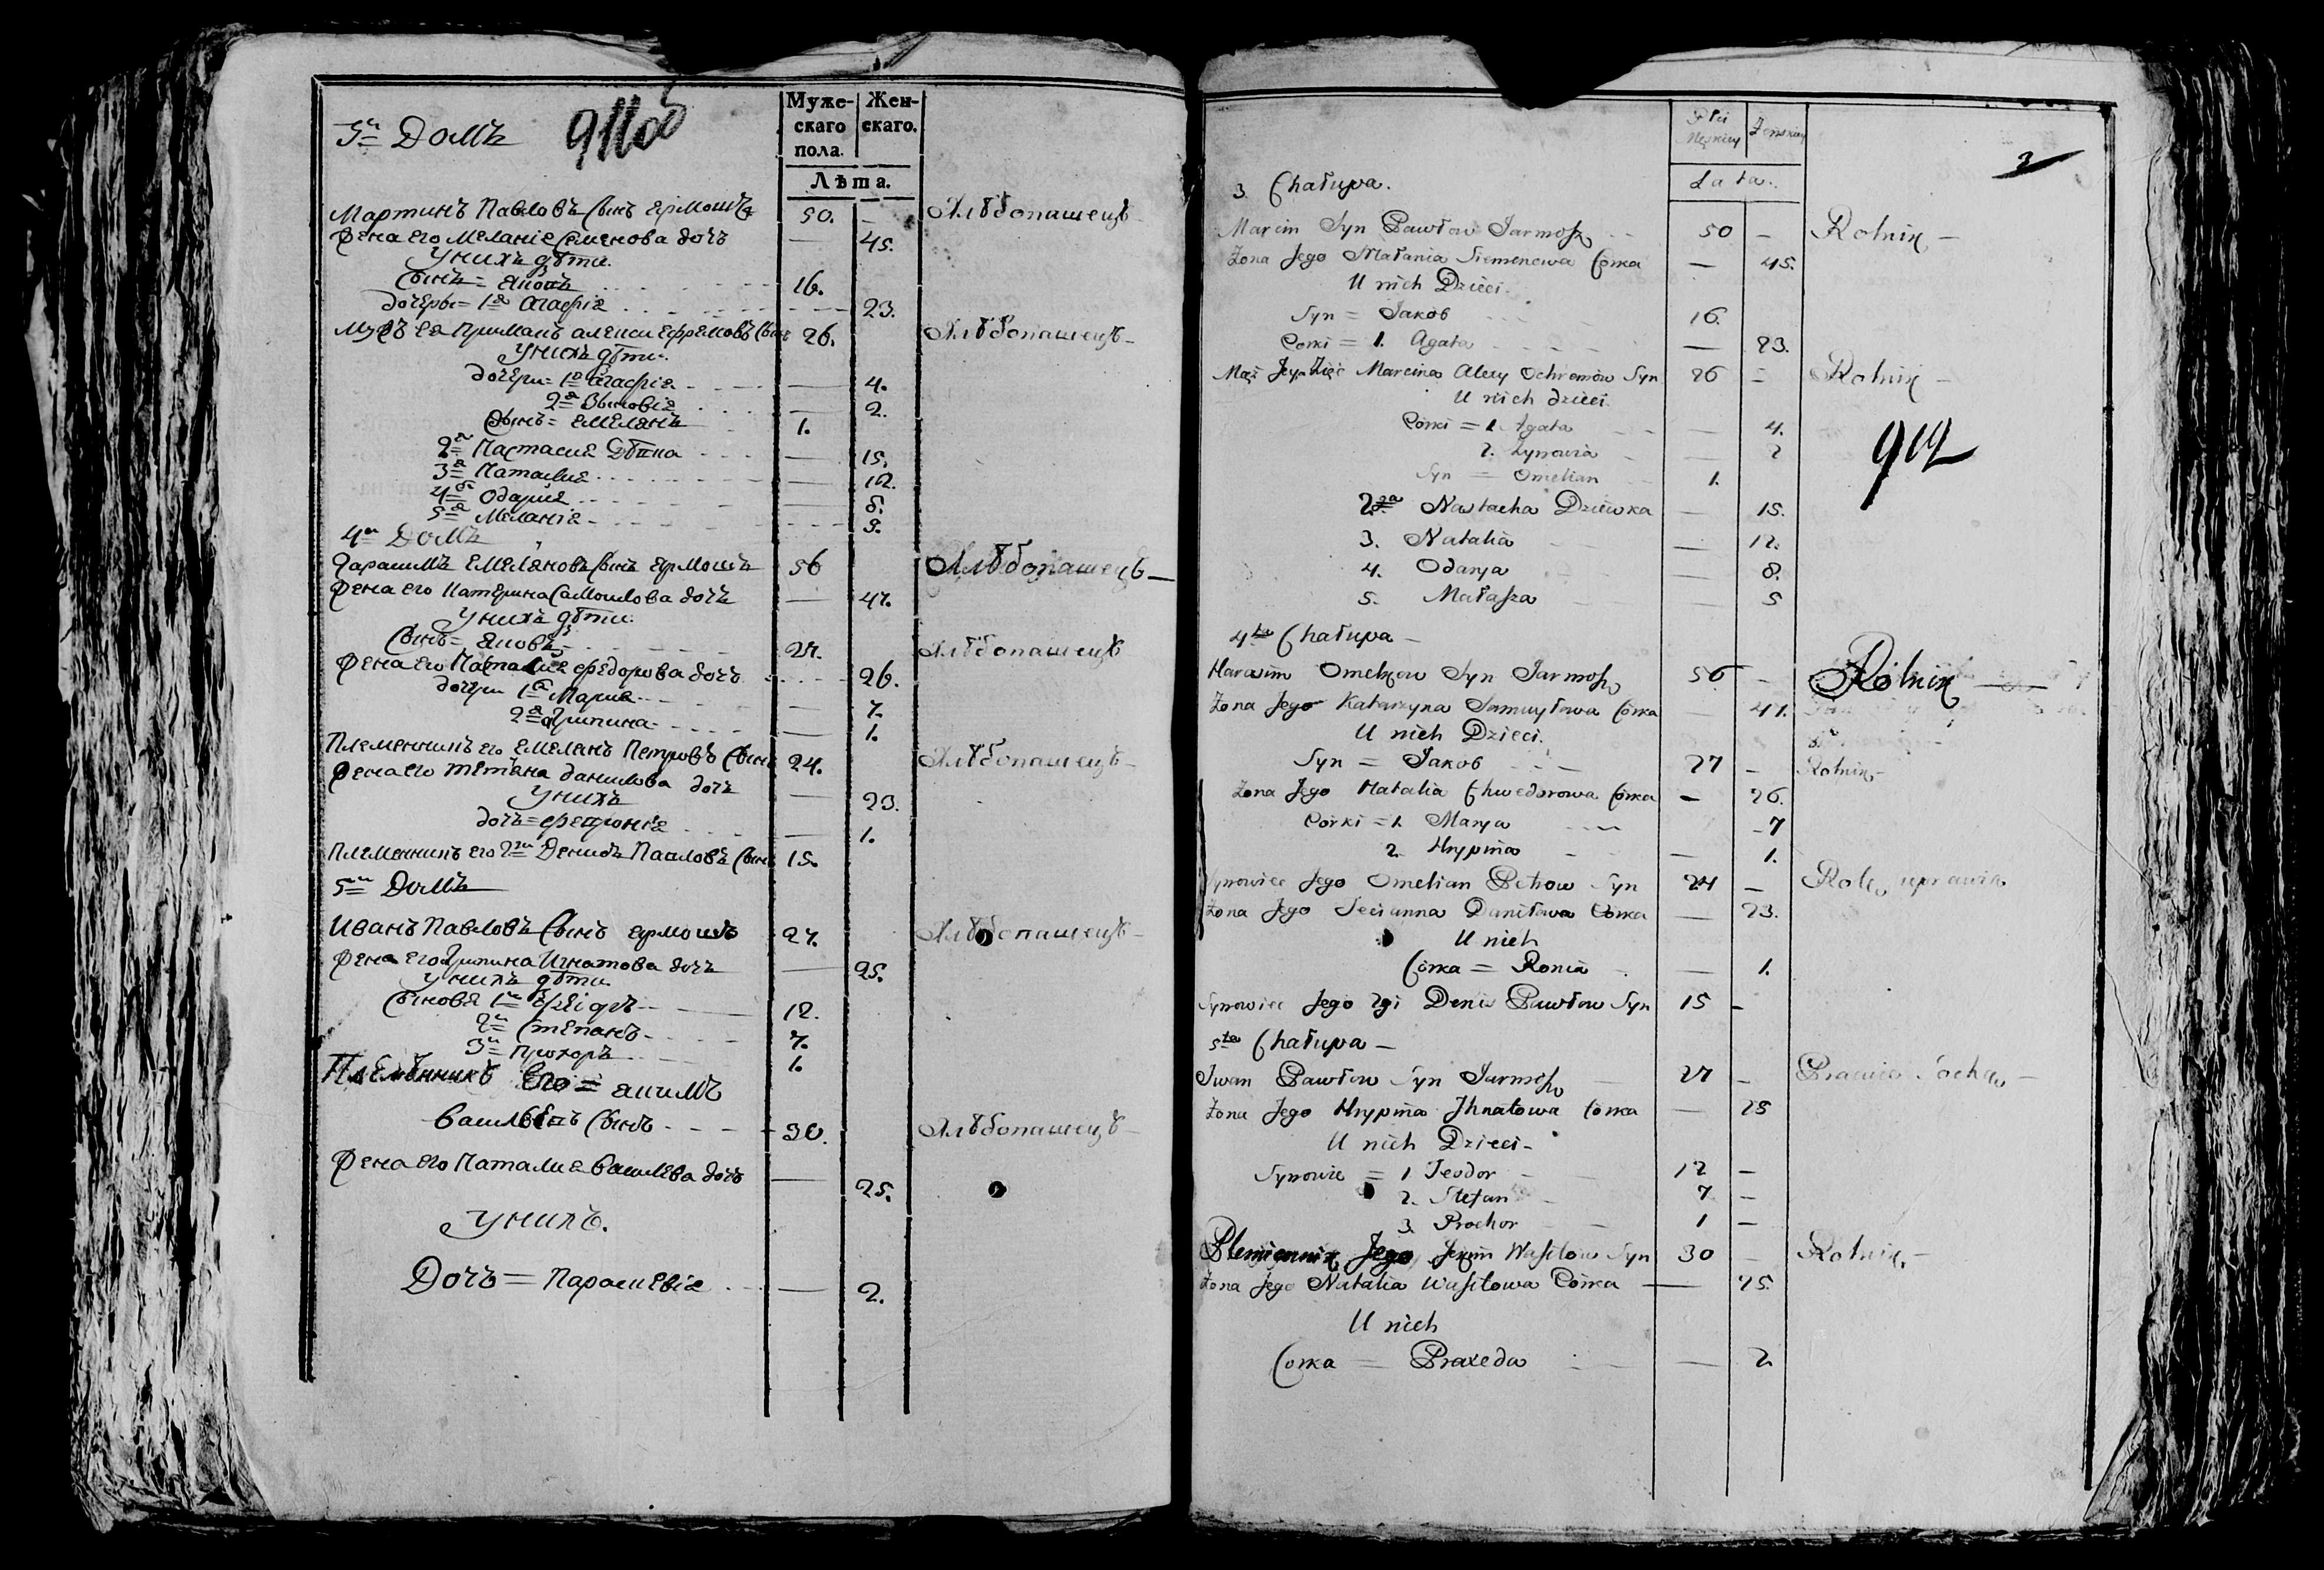 3й Домъ
Муже-
скаго
пола.
Жен-
скаго.
Лѣта.
Мартинъ Павловъ сынъ Ермошъ 50. — Хлѣбопашецъ
Жена его Меланіе Семенова дочъ — 45.
У нихъ дѣти.
Сынъ = Яковъ 16.
дочеры = 1я Агафія — 23.
Мужъ ея Алекси Ефремовъ сынъ 26. Хлѣбопашецъ
У нихъ дѣти.
дочери = 1я Агафія — 4.
2я Зѣновія — 2.
Сынъ = Емелянъ 1.
2я Настасия Дѣвка — 15.
3я Наталия — 12.
4я Одария — 8.
5я Меланія — 5.
4й Домъ
Гарасимъ Емеляновъ сынъ Ермошъ 56 Хлѣбопашецъ —
Жена его Катерина Самоилова дочъ — 47.
У нихъ дѣти.
Сынъ = Яковъ 27. Хлѣбопашецъ
Жена его Наталие Федорова дочъ — 26.
дочери 1я Мария — 7.
2я Грипина — 1.
Племенникъ его Емелянъ Петровъ сынъ 24. Хлѣбопашецъ —
Жена его Тетяна Данилова дочъ — 23.
У нихъ
дочъ = Февронія — 1.
Племенникъ его 2й Денисъ Павловъ сынъ 15.
5й Домъ
Иванъ Павловъ сынъ Ермошъ 27. Хлѣбопашецъ —
Жена его Грипина Игнатова дочъ — 25.
У нихъ дѣти
Сыновя 1й 12.
2й Степанъ 7.
3й Прохоръ 1.
Племѣнникъ Его = Якимъ
Василѣвъ сынъ 30. Хлѣбопашецъ —
Жена его Наталие Василева дочъ — 25.
У нихъ.
Дочъ = Параскевіе — 2.
Płci
Męzkiey
Żenskiey
Lata.
3
912
3 Chałupa.
Marcin Syn Pawłow Jarmosz 50 — Rolnik —
Żona Jego Małania Siemenowa Córka — 45.
U nich Dzieci.
Syn = Jakób 16.
Corki = 1. Agata — 23.
Mąż Jey Zięć Marcina Alexy Ochremów Syn 26 — Rolnik —
U nich dzieci
Córki = 1. Agata — 4.
2. Zynowia — 2
Syn = Omelian 1.
2ga Nastacha Dziewka — 15.
3. Natalia — 12.
4. Odarya — 8.
5. Małasza — 5
4ta Chałupa —
Harasim Omelxow Syn Jarmosz 56 — Rólnik —
Żona Jego Katarzyna Samuyłowa Córka — 47.
U nich Dzieci.
Syn = Jakób 27 — Rolnik —
Żona Jego Natalia Chwedorowa Córka — 26.
Córki = 1. Marya — 7
2. Hrypina — 1.
Synowiec Jego Omelian Petrow Syn 24 — Rolę uprawia
Żona Jego Tecianna Daniłowa Córka — 23.
U nich
Córka = Ronia — 1.
Synowiec Jego 2gi Denis Pawłow Syn 15 —
5ta Chałupa —
Iwan Pawłow Syn Jarmosz 27 —
Żona Jego Hrypina Jhnatowa Córka — 25
U nich Dzieci —
Synowie = 1 Teodor 12 —
2. Stefan 7 —
3. Prochor 1 —
Plemiennik Jego Jakim Wasilow Syn 30 — Rolnik. —
Żona Jego Natalia Wasilowa Córka — 25.
U nich
Corka = Praxeda — 2